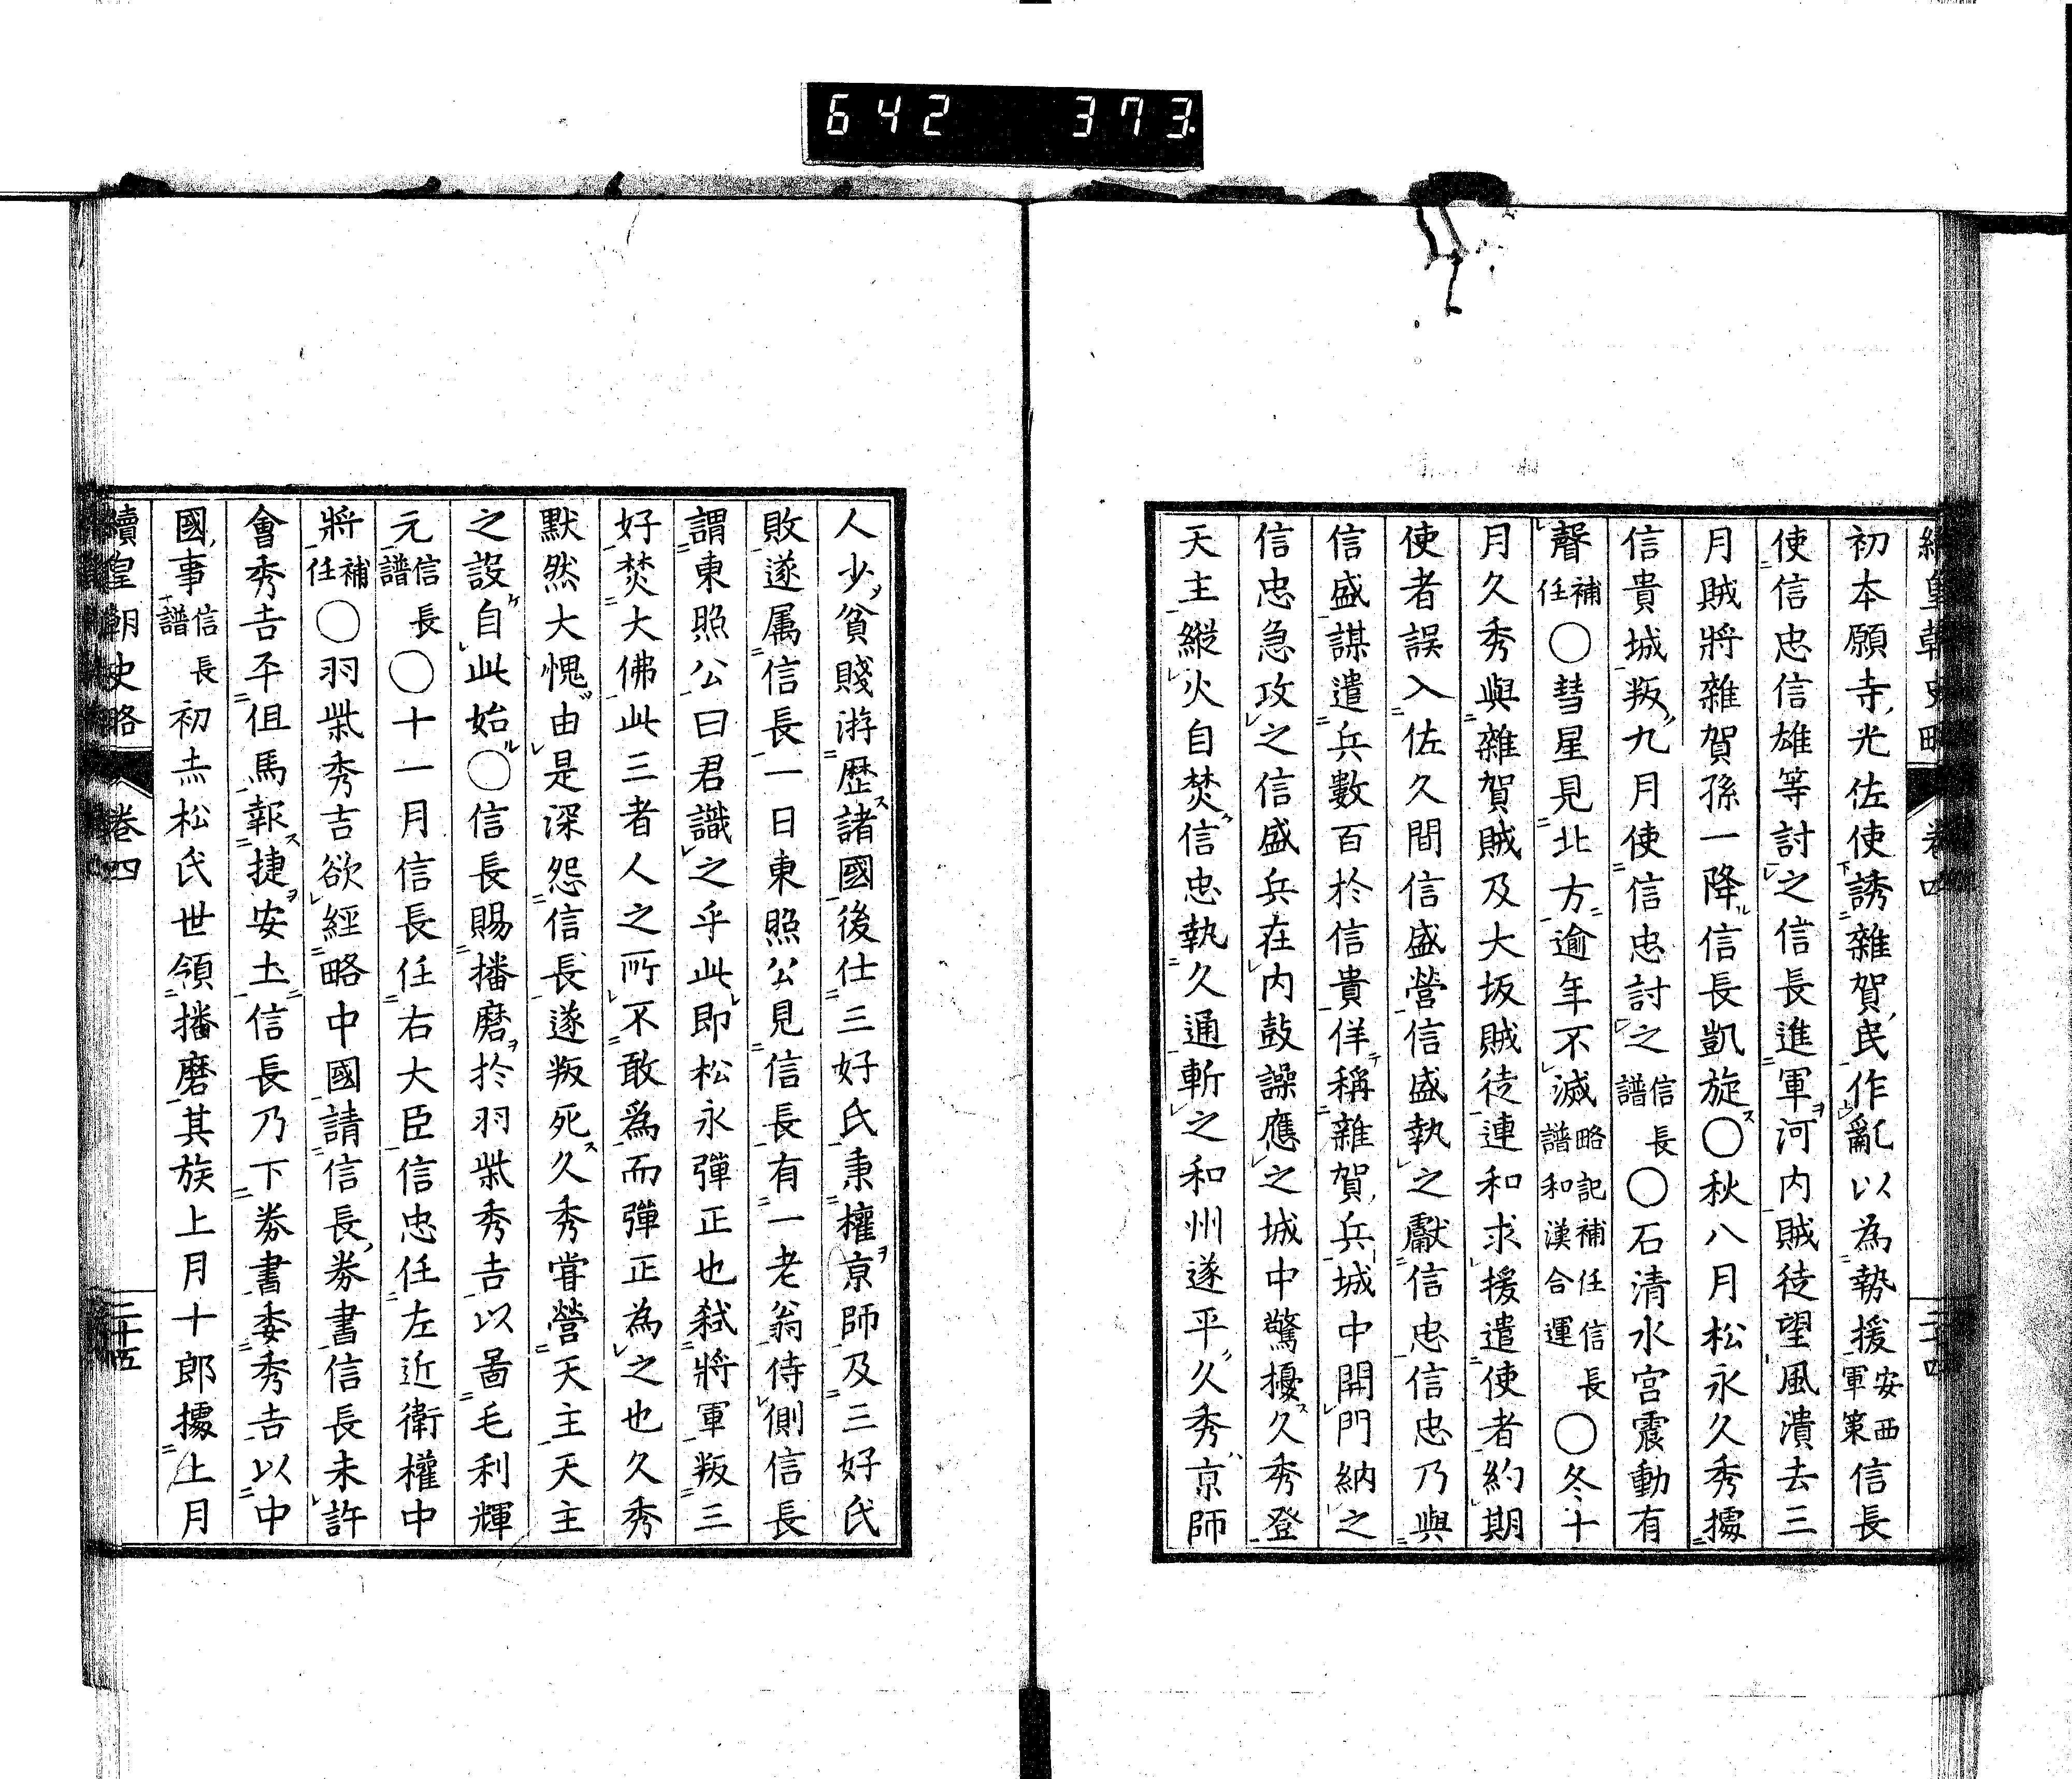 642 373
續皇朝史略 卷四 二十四
初本願寺光佐使誘雜賀民作亂以為勢援安西軍策信長
使信忠信雄等討之信長進軍河内賊徒望風潰去三
月賊將雜賀孫一降信長凱旋〇秋八月松永久秀據
信貴城叛九月使信忠討之信長譜〇石清水宮震動有
聲補任〇彗星見北方逾年不滅略記補任信長譜和漢合運〇冬十
月久秀與雜賀賊及大坂賊徒連和求援遣使者約期
使者誤入佐久間信盛營信盛執之獻信忠信忠乃與
信盛謀遣兵數百於信貴佯稱雜賀兵城中開門納之
信忠急攻之信盛兵在内鼓譟應之城中驚擾久秀登
天主縱火自焚信忠執久通斬之和州遂平久秀京師
人少貧賤游歷諸國後仕三好氏秉權京師及三好氏
敗遂属信長一日東照公見信長有一老翁侍側信長
謂東照公曰君識之乎此即松永彈正也弑將軍叛三
好焚大佛此三者人之所不敢爲而彈正為之也久秀
默然大愧由是深怨信長遂叛死久秀甞營天主天主
之設自此始〇信長賜播磨於羽柴秀吉以圖毛利輝
元信長譜〇十一月信長任右大臣信忠任左近衛權中
將補任〇羽柴秀吉欲經略中國請信長券書信長未許
會秀吉平伹馬報捷安土信長乃下券書委秀吉以中
國事信長譜初赤松氏世領播磨其族上月十郎據上月
續皇朝史略 卷四 二十五